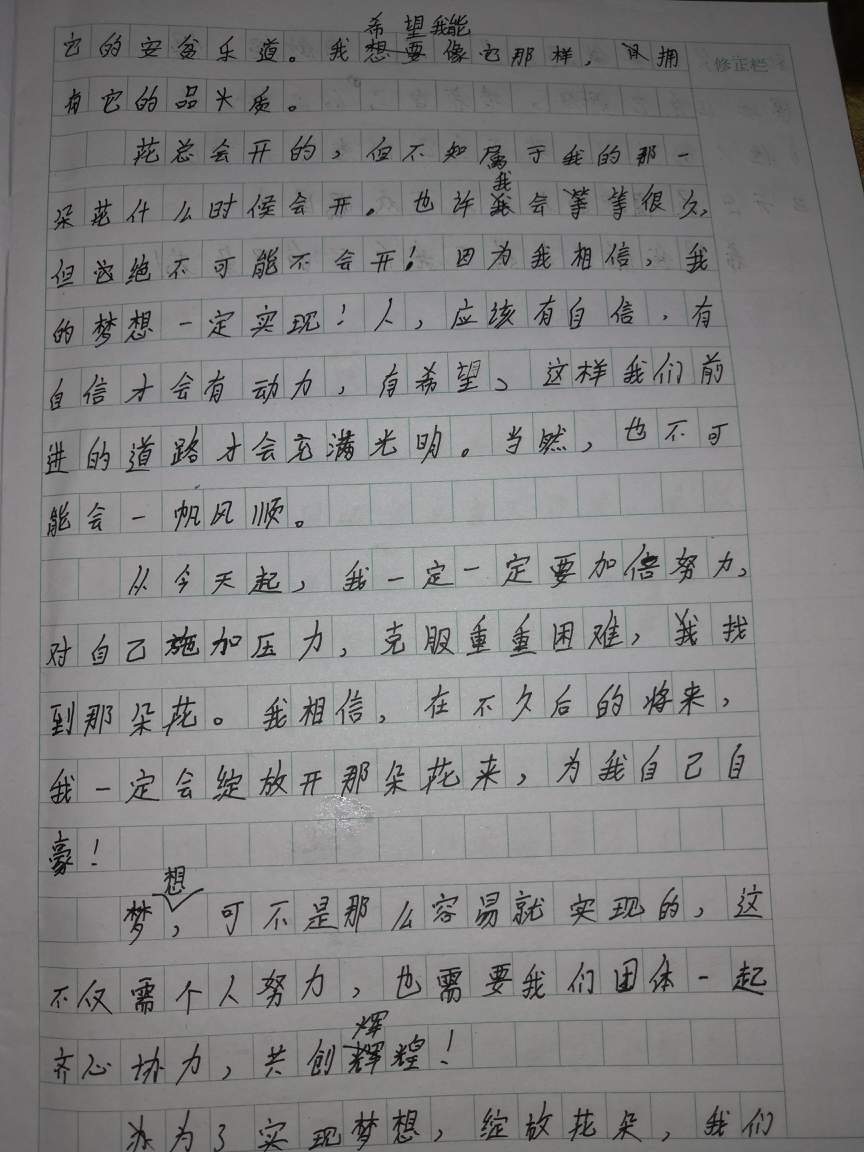 希望我能
它的安贫乐道。我想要像它那样，以拥
修正栏
有它的品质。
花总会开的，但不知属于我的那一
我
朵花什么时候会开。也许我会等等很久，
但它绝不可能不会开！因为我相信，我
的梦想一定实现！人，应该有自信，有
自信才会有动力，有希望、这样我们前
进的道路才会充满光明。当然，也不可
能会一帆风顺。
从今天起，我一定一定要加倍努力，
对自己施加压力，克服重重困难，我找
到那朵花。我相信，在不久后的将来，
我一定会绽放开那朵花来，为我自己自
豪！
想
梦，可不是那么容易就实现的，这
不仅需个人努力，也需要我们团体一起
辉
齐心协力，共创辉煌！
为了实现梦想，绽放花朵，我们